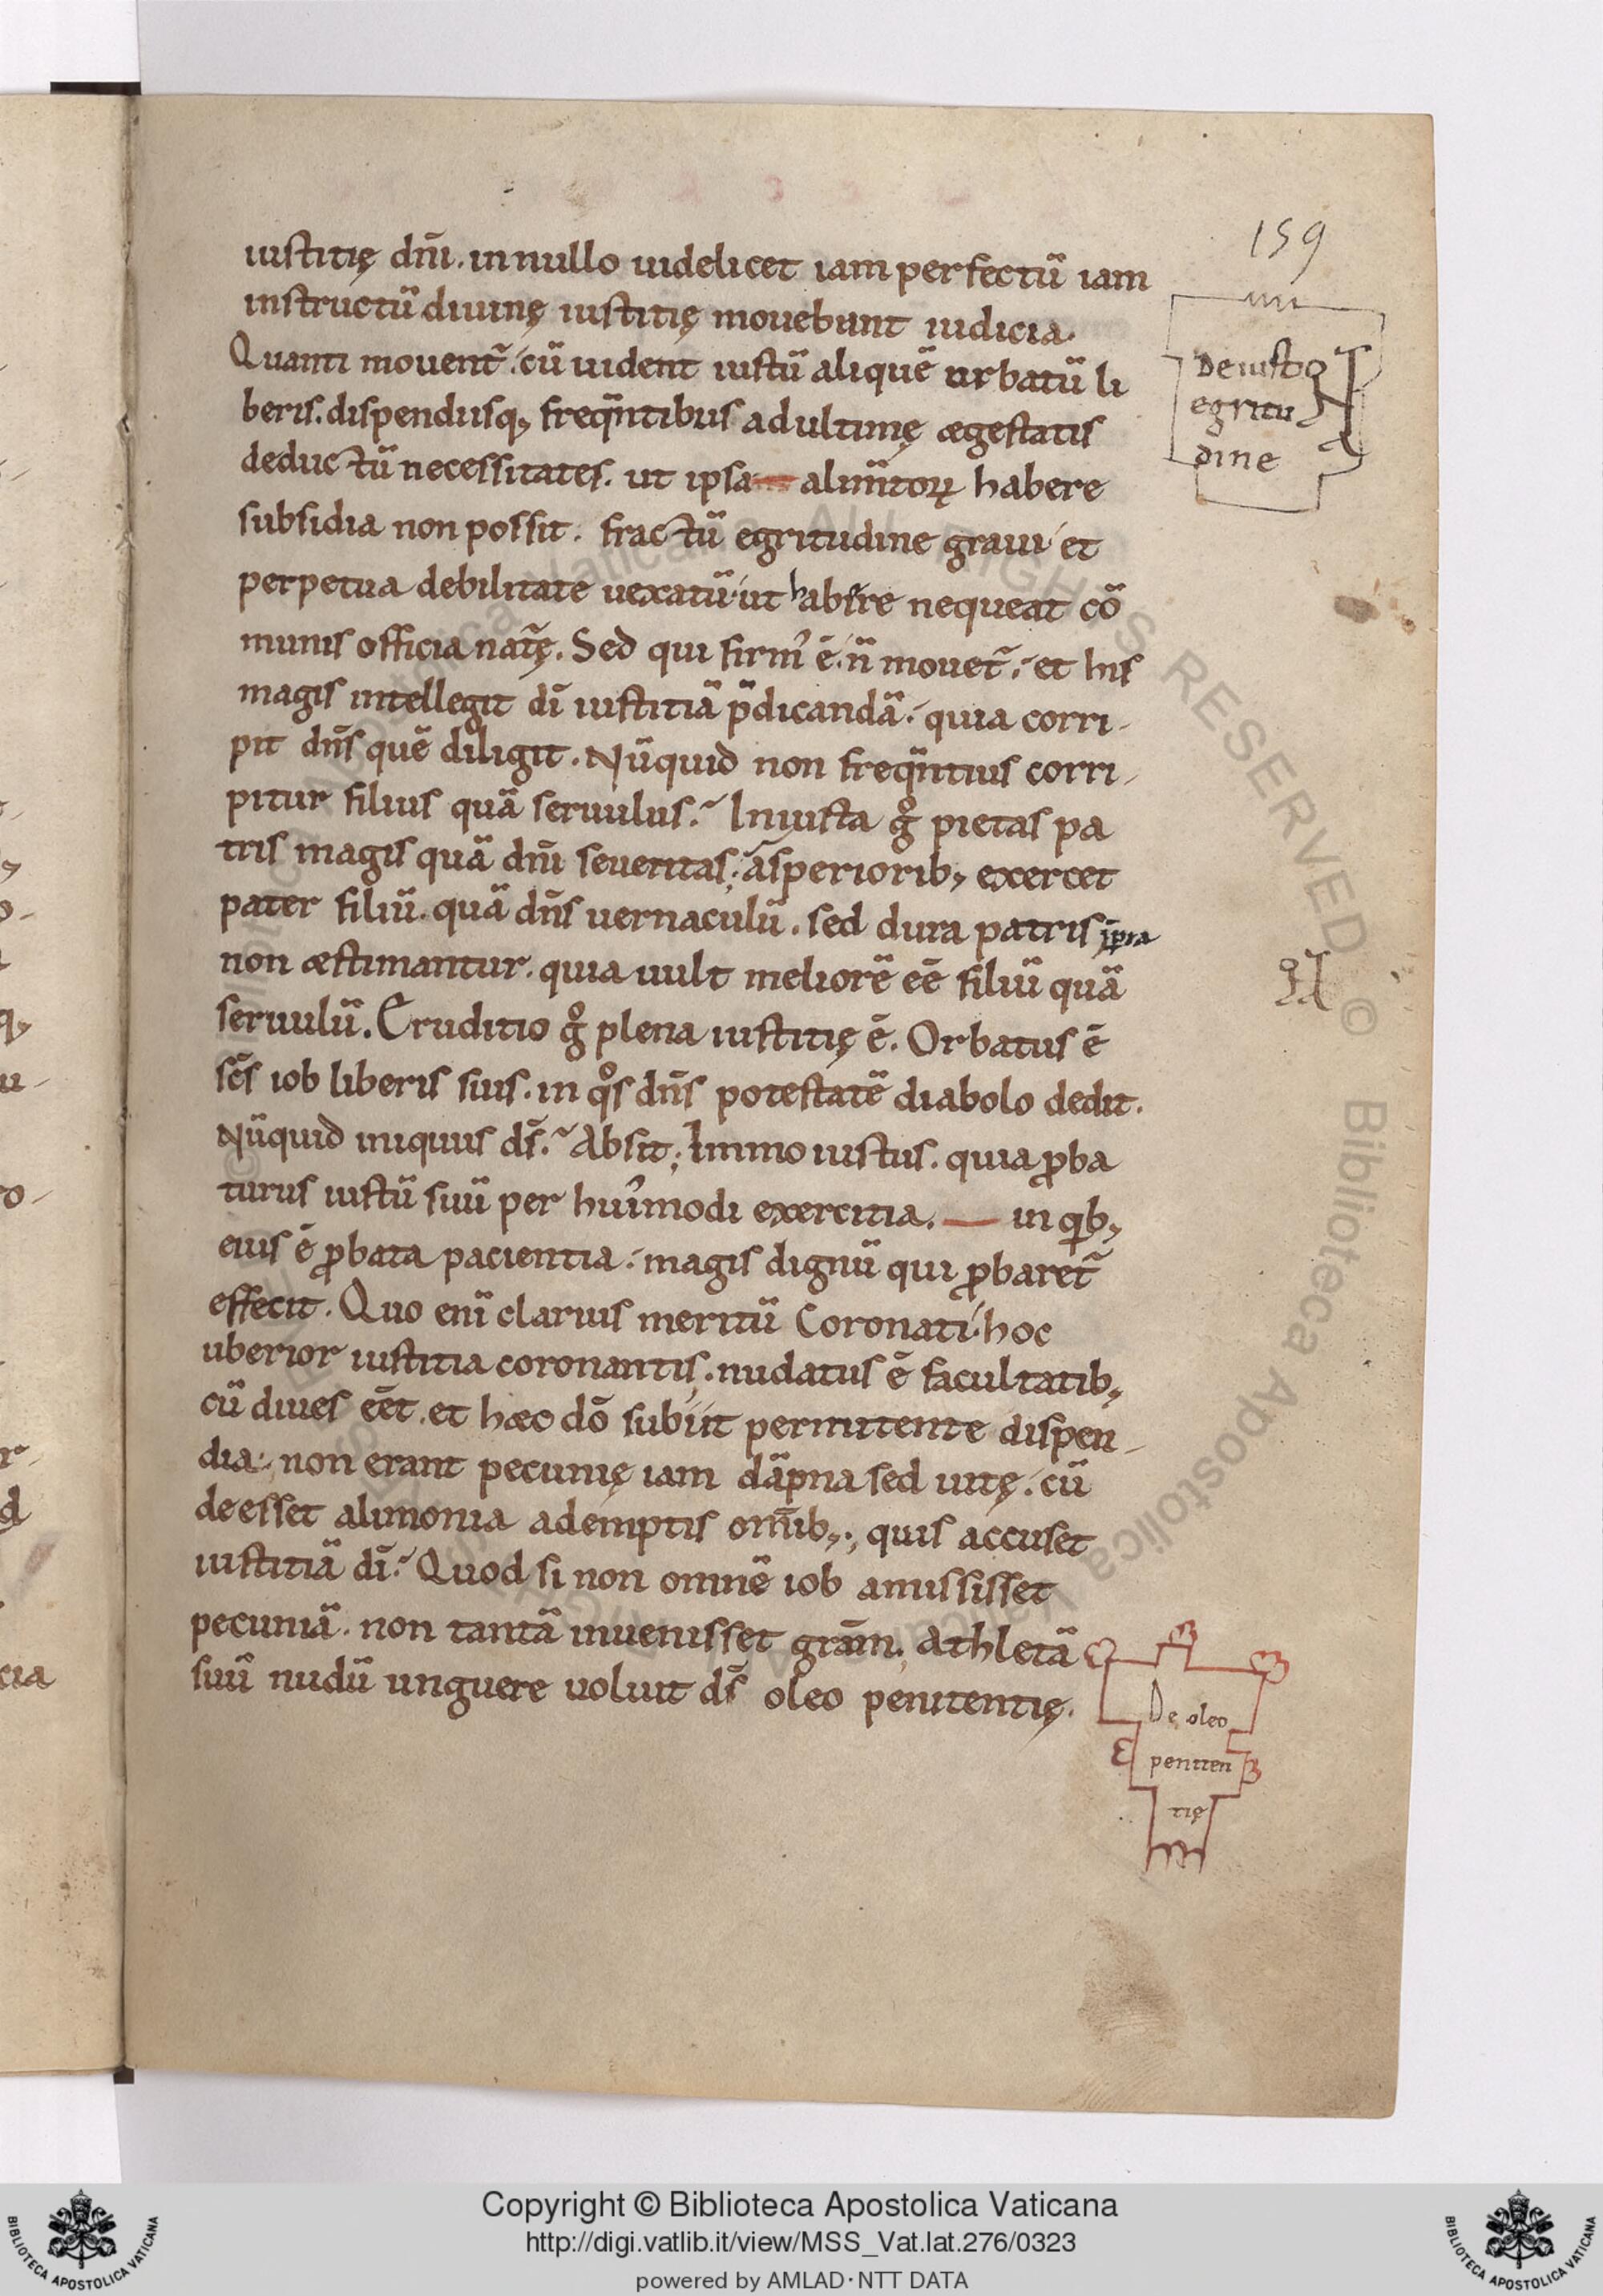 159
iustitię dn̄i. in nullo uidelicet iam perfectū iam
instructū diuinę iustitię mouebunt iudicia.
Quanti mouent᷑. cū uident iustū aliquē orbatū li
beris. dispendiisq; freq̄ntibus ad ultimę ægestatis
deductū necessitates. ut ipsa — alim̄torꝝ habere
subsidia non possit. fractū egritudine graui et
perpetua debilitate uexatū. ut habire nequeat cō
munis officia nat̄ę. Sed qui firm᷒ ē. n̄ mouet᷑. et his
magis intellegit dī iustitiā p̄dicandā. quia corri-
pit dn̄s quē diligit. Nūquid non freq̄ntius corri-
pitur filius quā seruulus. Iniusta gͦ pietas pa
tris magis quā dn̄i seueritas; asperiorib; exercet
pater filiū. quā dn̄s uernaculū. sed dura patris
non æstimantur. quia uult meliorē eē filiū quā
seruulū. Eruditio gͦ plena iustitię ē. Orbatus ē
sc̄s iob liberis suis. in qͦs dn̄s potestatē diabolo dedit.
Nūquid iniquus ds̄. Absit; Immo iustus. quia ꝓba
turus iustū suū per hui᷒modi exercitia. — in qͥb;
eius ē ꝓbata pacientia. magis dignū qui ꝓbaret᷑
effecit. Quo enī clarius meritū Coronati. hoc
uberior iustitia coronantis. nudatus ē facultatib;
cū diues eēt. et hæc dō subiit permittente dispen-
dia. non erant pecunię iam dāpna sed uitę. cū
de esset alimonia ademptis om̄ib;. quis accuset
iustitiā dī. Quod si non omnē iob amississet
pecuniā. non tantā inuenisset grām. Athletā
suū nudū unguere uoluit ds̄ oleo penitentię.
De iusto
egritu
dine
De oleo
peniten
tię
ALL RIGHTS RESERVED © Biblioteca Apostolica Vaticana
Copyright © Biblioteca Apostolica Vaticana
http://digi.vatlib.it/view/MSS_Vat.lat.276/0323
powered by AMLAD·NTT DATA
BIBLIOTECA APOSTOLICA VATICANA
BIBLIOTECA APOSTOLICA VATICANA